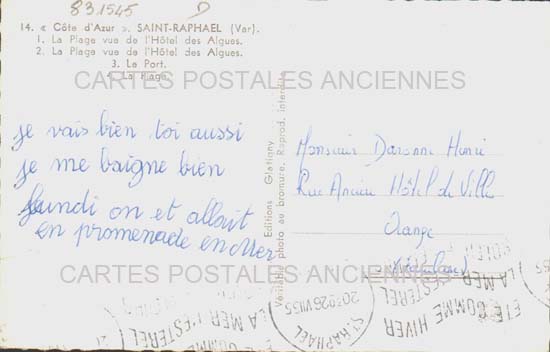 831545 D
14. « Côte d'Azur ». SAINT-RAPHAEL (Var).
1. La Plage vue de l'Hôtel des Algues.
2. La Plage vue de l'Hôtel des Algues.
3. Le Port.
4. La Plage.
CARTES POSTALES ANCIENNES
je vais bien toi aussi
je me baigne bien
lundi on et allait
en promenade en Mer
Editions Glatigny
Véritable photo au bromure. Reprod. interdite
Monsieur Daronne Henri
Rue Ancien Hôtel de Ville
Orange
(Vaucluse)
CARTES POSTALES ANCIENNES
ST RAPHAEL
20H30 26 VII 55
ETE COMME HIVER
LA MER L'ESTEREL